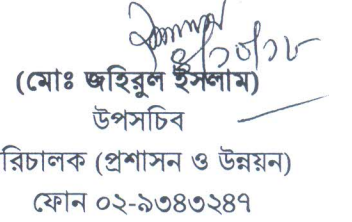 ৪/১০/১৮
(মোঃ জহিরুল ইসলাম)
উপসচিব
রিচালক (প্রশাসন ও উন্নয়ন)
ফোন ০২-৯৩৪৩২৪৭